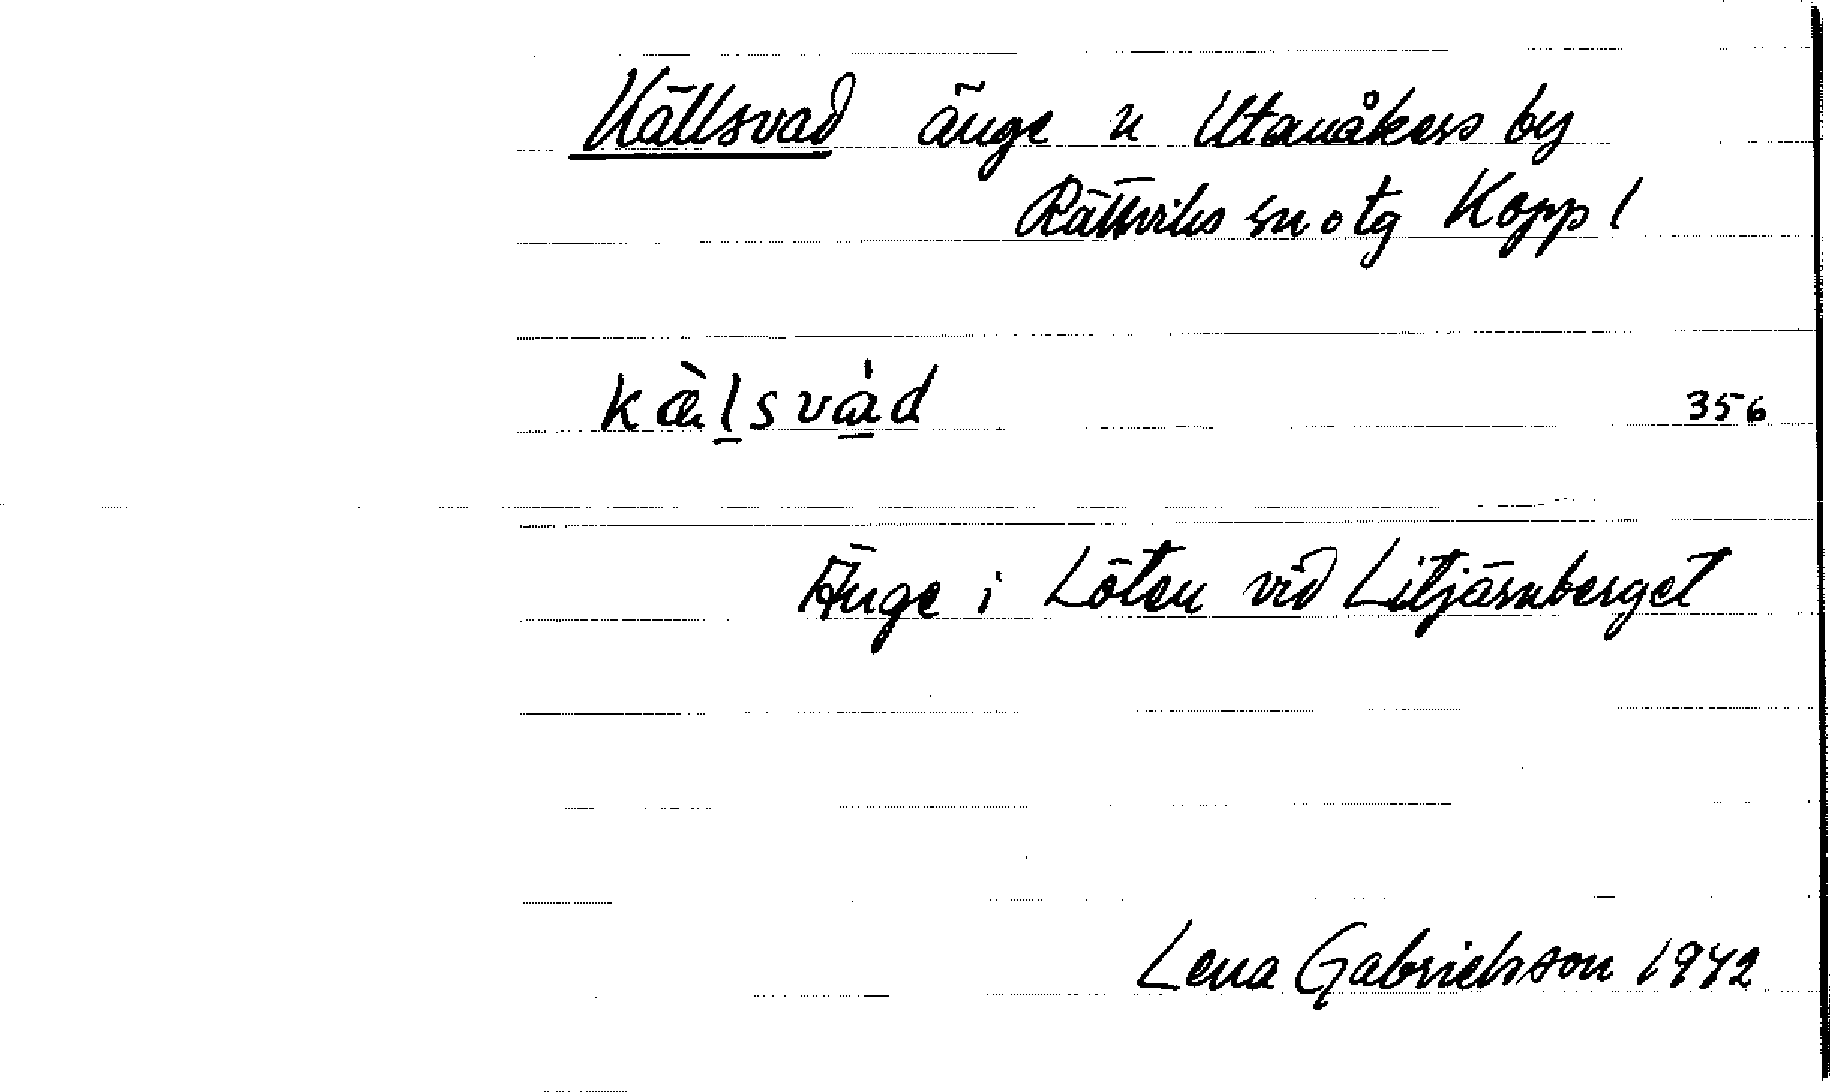 Källsvad änge n Utanåkers by
Rättviks sn o tg Kopp l
kæ̀l̠svá̠d
356
Änge i Löten vid Litjärnberget
Lena Gabrielsson 1942